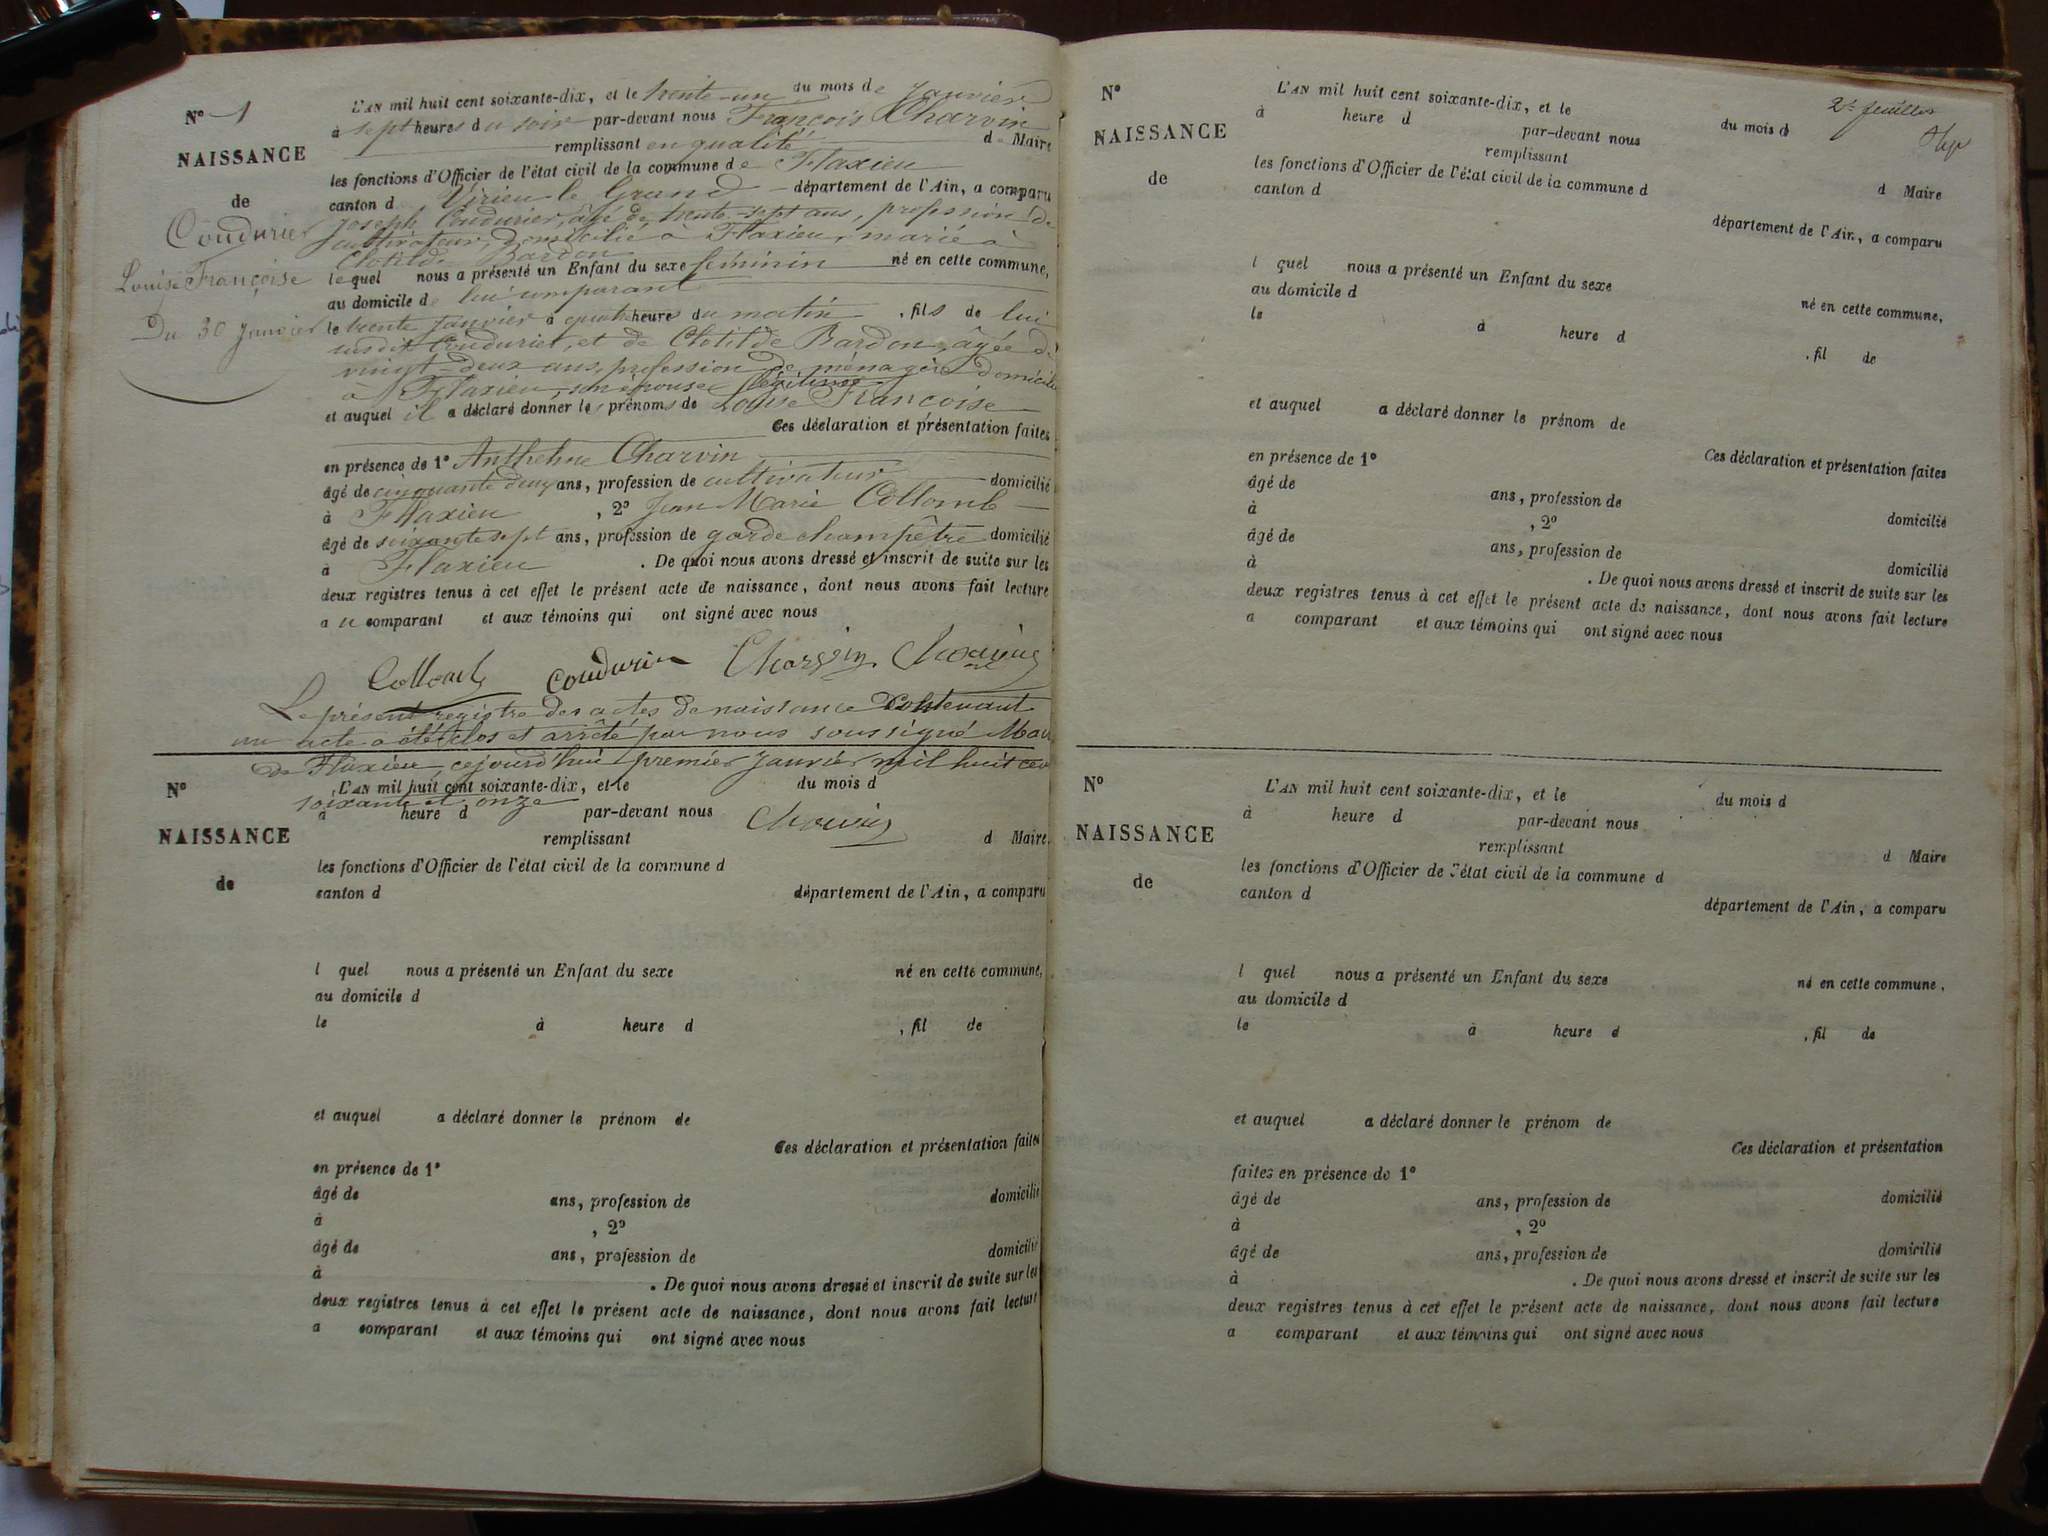 N° 1
NAISSANCE
de
Coudurier
Louise Françoise
Du 30 Janvier
L'AN mil huit cent soixante-dix, et le trente-un du mois de Janvier
à sept heures du soir par-devant nous François Charvin
remplissant en qualité de Maire
les fonctions d'Officier de l'état civil de la commune de Flaxieu
canton d Virieu le Grand département de l'Ain, a comparu
Joseph Coudurier, âgé de trente-sept ans, profession de
cultivateur, domicilié à Flaxieu, marié à
Clotilde Bardon
lequel nous a présenté un Enfant du sexe féminin né en cette commune,
au domicile de lui comparant
le trente Janvier à quatre heure du matin , fils de lui
susdit Coudurier, et de Clotilde Bardon, âgée de
vingt-deux ans, profession de ménagère domicilié
à Flaxieu, son épouse légitime
et auquel il a déclaré donner les prénoms de Louise Françoise
Ces déclaration et présentation faites
en présence de 1° Anthelme Charvin
âgé de cinquante deux ans, profession de cultivateur domicilié
à Flaxieu , 2° Jean Marie Collomb
âgé de soixante sept ans, profession de garde champêtre domicilié
à Flaxieu . De quoi nous avons dressé et inscrit de suite sur les
deux registres tenus à cet effet le présent acte de naissance, dont nous avons fait lecture
au comparant et aux témoins qui ont signé avec nous
Collomb Coudurier Charvin Charvin
Le présent registre des actes de naissance contenant
un acte a été clos et arrêté par nous soussigné Maire
de Flaxieu, cejourd'hui premier Janvier mil huit cent
soixante et onze
Charvin
N°
NAISSANCE
de
L'AN mil huit cent soixante-dix, et le du mois d
à heure d par-devant nous
remplissant d Maire
les fonctions d'Officier de l'état civil de la commune d
canton d département de l'Ain, a comparu
l quel nous a présenté un Enfant du sexe né en cette commune,
au domicile d
le à heure d , fil de
et auquel a déclaré donner le prénom de
Ces déclaration et présentation faites
en présence de 1°
âgé de ans, profession de domicilié
à , 2°
âgé de ans, profession de domicilié
à . De quoi nous avons dressé et inscrit de suite sur les
deux registres tenus à cet effet le présent acte de naissance, dont nous avons fait lecture
a comparant et aux témoins qui ont signé avec nous
2e feuillet
N°
NAISSANCE
de
L'AN mil huit cent soixante-dix, et le du mois d
à heure d par-devant nous
remplissant d Maire
les fonctions d'Officier de l'état civil de la commune d
canton d département de l'Ain, a comparu
l quel nous a présenté un Enfant du sexe né en cette commune,
au domicile d
le à heure d , fil de
et auquel a déclaré donner le prénom de
Ces déclaration et présentation faites
en présence de 1°
âgé de ans, profession de domicilié
à , 2°
âgé de ans, profession de domicilié
à . De quoi nous avons dressé et inscrit de suite sur les
deux registres tenus à cet effet le présent acte de naissance, dont nous avons fait lecture
a comparant et aux témoins qui ont signé avec nous
N°
NAISSANCE
de
L'AN mil huit cent soixante-dix, et le du mois d
à heure d par-devant nous
remplissant d Maire
les fonctions d'Officier de l'état civil de la commune d
canton d département de l'Ain, a comparu
l quel nous a présenté un Enfant du sexe né en cette commune,
au domicile d
le à heure d , fil de
et auquel a déclaré donner le prénom de
Ces déclaration et présentation
faites en présence de 1°
âgé de ans, profession de domicilié
à , 2°
âgé de ans, profession de domicilié
à . De quoi nous avons dressé et inscrit de suite sur les
deux registres tenus à cet effet le présent acte de naissance, dont nous avons fait lecture
a comparant et aux témoins qui ont signé avec nous